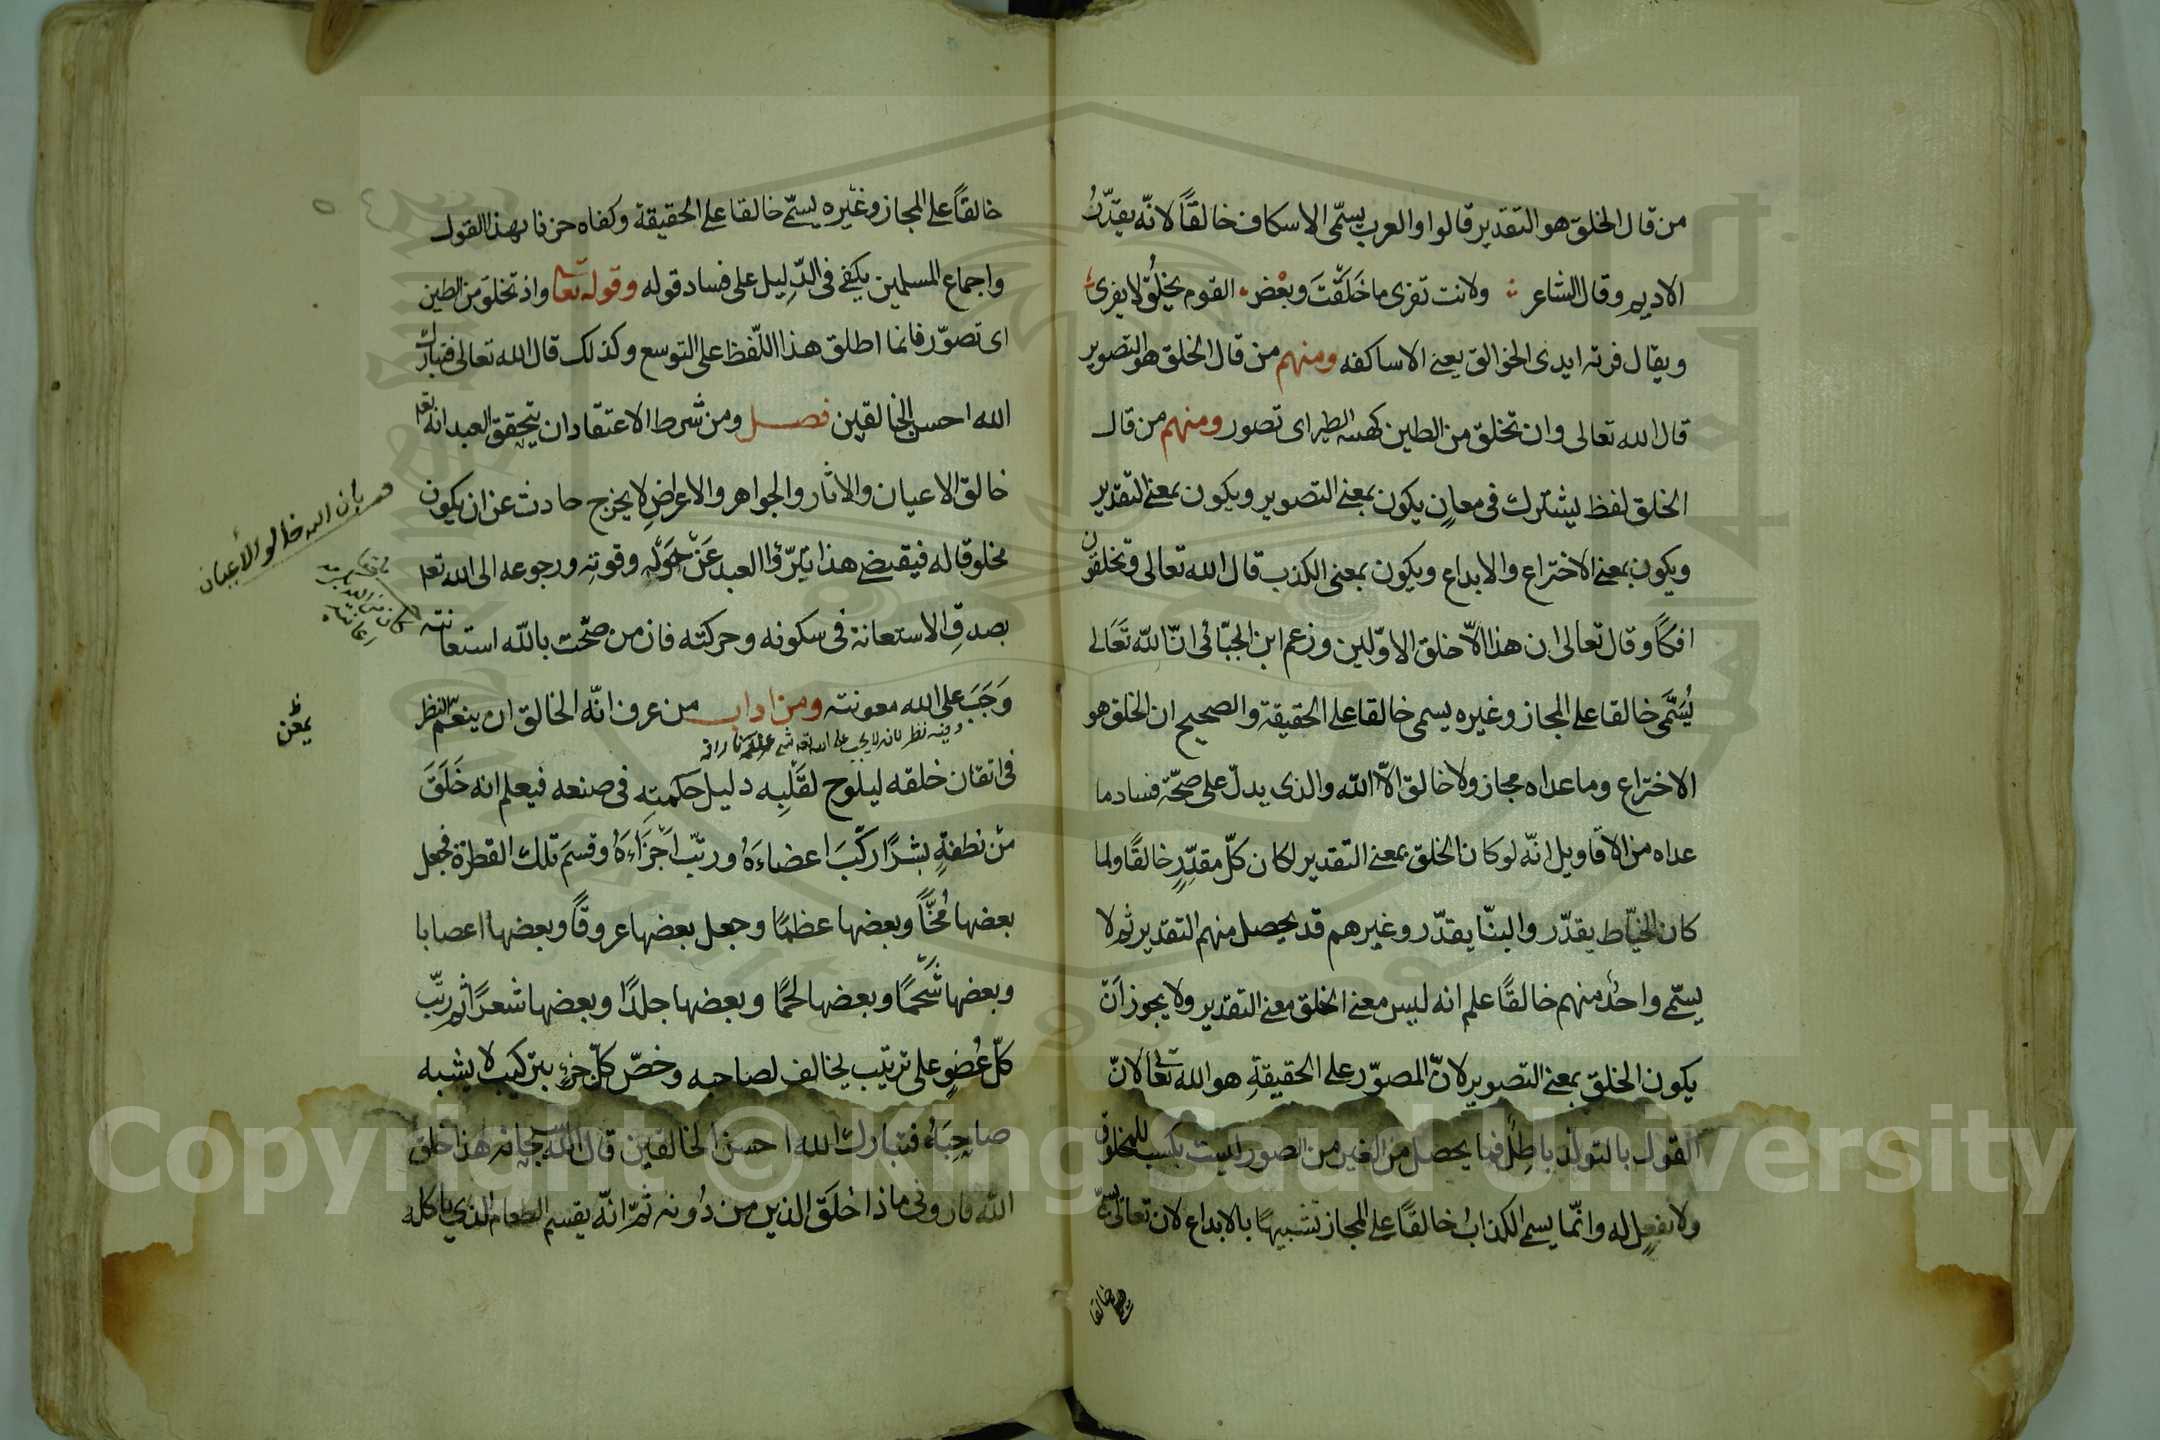 من قال الخلق هو التقدير قالوا والعرب يسمّى الاسكاف خالقاً لانّه يقدّرُ
الاديم وقال الشاعر ولانت تفرى ما خَلَقْتَ وبعْض القوم يخلُق لا يفرى
ويقال فرته ايدى الخوالق يعنى الاساكفه ومنهم من قال الخلق هو التصوير
قال الله تعالى وان تخلق من الطين كهيئه الطير اى تصور ومنهم من قال
الخلق لفظ يشترك فى معانٍ يكون بمعنى التصوير ويكون بمعنى التقدير
ويكون بمعنى الاختراع والابداع ويكون بمعنى الكذب قال الله تعالى وتخلقون
افكاً وقال تعالى ان هذا الاّ خلق الاوّلين وزعم ابن الجبّائى انّ اللّه تَعَالى
يُسَمَّى خالقا على المجاز وغيره يسمى خالقا على الحقيقة والصحيح ان الخلق هو
الاختراع وما عداه مجاز ولا خالق الاّ اللّه والذى يدلّ على صحّة فساد ما
عداه من الاقاويل انّه لو كان الخلق بمعنى التقدير لكان كلّ مقدِّرٍ خالقًا ولما
كان الخيّاط يقدّر والبنّا يقدّر وغيرهم قد يحصل منهم التقدير ثم لا
يسمّى واحدٌ منهم خالقًا علم انه ليس معنى الخلق معنى التقدير ولا يجوز اَنْ
يكون الخلق بمعنى التصوير لانّ المصوّر على الحقيقةِ هو الله تعالى لانّ
القول بالتولّد باطِلٌ فما يحصل من الغير من الصور ليست بكسب للمخلوق
ولا بفعلٍ له وانّما يسمى الكذابُ خالقًا على المجاز تشبيهًا بالابداع لان تعالى يسمّى
خالقا
خالقاً على المجاز وغيْره يسمّى خالقا على الحقيقة وكفاه خزيا بهذا القول
واجماع المسلمين يكفى فى الدّلِيل على فساد قوله وقوله تعالى واذ تخلق من الطين
اى تصوّر فانما اطلق هذا اللّفظ على التوسع وكذلك قال الله تعالى فتبارك
الله احسن الخالقين فصل ومن شرط الاعتقاد ان يتحقق العبد انه تعلى
خالق الاعيان والاثار والجواهر والاعراضِ لا يخرج حادث عن ان يكون
مخلوقا له فيقتضى هذا تبرّؤ العبد عَنْ حَوْلِهِ وقوتِه ورجوعه الى الله تعلى
بصدقِ الاستعانة فى سكونه وحركته فان من صحّت باللّه استعانته
وَجَبَ على الله معونته ومن اداب من عرف انّه الخالق ان ينعّم النظر
وفيه نظر لانه لا يجب على الله تعالى شئ
فى اتقان خلقه ليلوح لقَلْبِه دليل حكمته فى صنعه فيعلم انه خَلَقَ
منْ نطفةٍ بشرًا ركّبَ اعضاءَهُ ورتّب اَجْزَاءَهُ وقسمَ تلك القطرة فجعل
بعضها مُخّاً وبعضها عظمًا وجعل بعضها عروقًا وبعضها اعصابا
وبعضها شَحْمًا وبعضها لحمًا وبعضها جلدًا وبعضها شعرًا ثم رتّب
كلّ عُضوٍ على ترتيب يخالف لصاحبه وخصّ كلّ جزءٍ بتركيب لا يشبه
صاحِبَهُ فتبارك الله احسن الخالقين قال الله سبحانه هذا خلق
الله فارونى ماذا خلَق الذين من دُونه ثمّ انّه يقسم الطعام الذي ياكله
بان الله خالق الأعيان
يمعن
Copyright © King Saud University